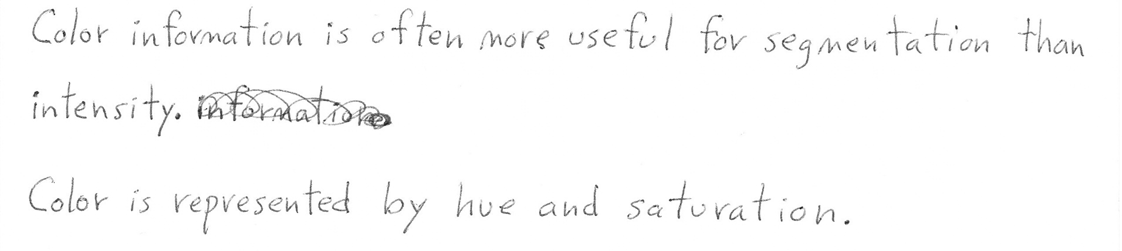 Color information is often more useful for segmentation than
intensity.
Color is represented by hue and saturation.